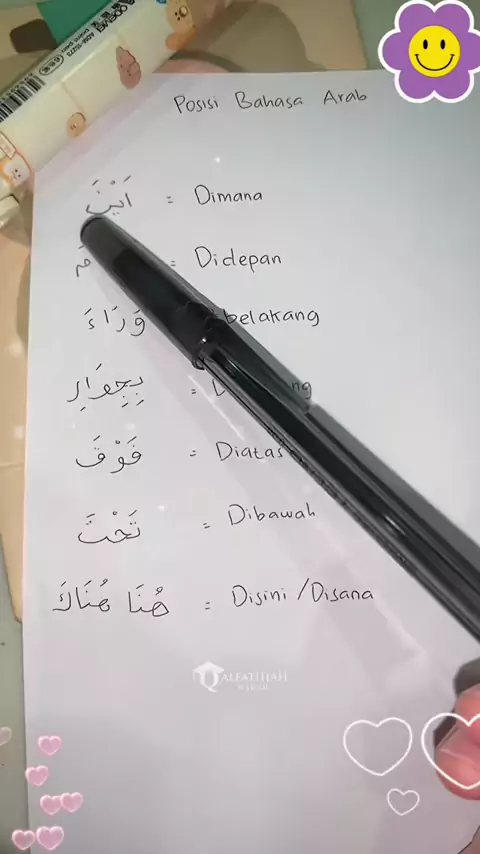 Posisi Bahasa Arab
أَيْنَ = Dimana
= Didepan
وَرَاءَ belakang
بِجِوَارِ =
فَوْقَ = Diatas
تَحْتَ = Dibawah
هُنَا هُنَاكَ = Disini / Disana
ALFATIHAH